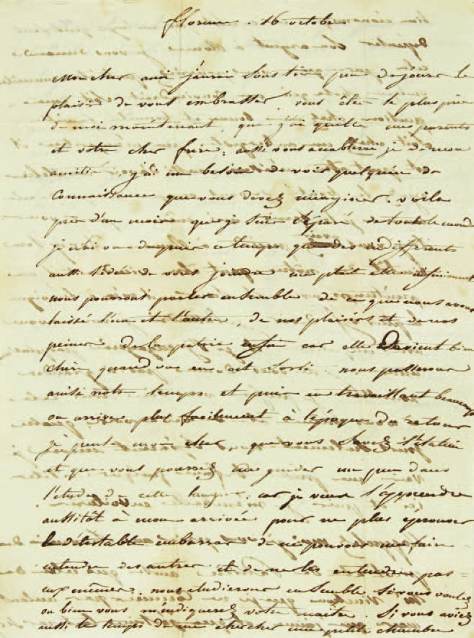 florence 16 octobre
Mon cher ami j'aurai sous très peu de jours le
plaisir de vous embrasser, vous êtes le plus près
de moi maintenant, que j'ai quitté mes parents
et votre cher frère, aussi vous
amitié j'ai un besoin de voir quelqu'un de
connaissance que vous devez imaginer, voila
près d'un mois que je suis séparé de tout le monde
je n'ai vu depuis ce temps que des indifférents
aussi l'idée de vous joindre me
nous pourrons parler ensemble de ce que nous avons
laissé l'un et l'autre, de nos plaisirs et de nos
peines de la patrie enfin car elle devient bien
chère quand on en est sorti. nous passerons
ainsi notre temps et puis en travaillant beaucoup
on arrive plus facilement à l'époque du retour
je pense mon cher que vous savez l'italien
et que vous pourrez me guider un peu dans
l'étude de cette langue, car je veux l'apprendre
aussitôt à mon arrivée pour ne plus éprouver
le détestable embarras de ne pouvoir me faire
entendre des autres et de ne les entendre pas
eux mêmes; nous étudierons ensemble si vous voulez
ou bien vous m'indiquerez votre maître. Si vous aviez
aussi le temps de me chercher une petite chambre